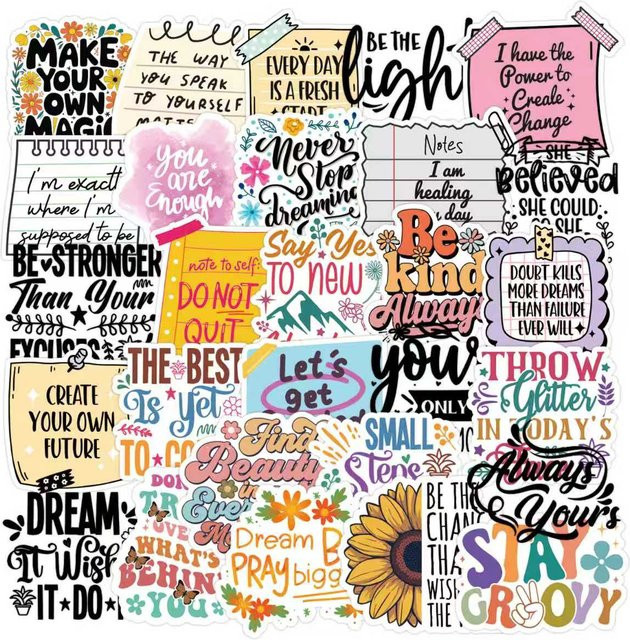 MAKE
YOUR
OWN
MAGI
THE WAY
YOU SPEAK
TO YOURSELF
MATTE
EVERY DAY
IS A FRESH
START
BE THE
light
I have the
Power to
Create
Change
I'm exactl
where I'm
supposed to be
you
are
Enough
Never
Stop
dreaming
Notes
I am
healing
day
SHE
Believed
SHE COULD
SHE
BE STRONGER
Than Your
EXCUSES
note to self:
DO NOT
QUIT
Say Yes
TO new
Be
kind
Always
DOUBT KILLS
MORE DREAMS
THAN FAILURE
EVER WILL
CREATE
YOUR OWN
FUTURE
THE BEST
Is Yet
TO CO
Let's
get
you
ONLY
THROW
Glitter
IN TODAY'S
Find
Beauty
in Eve
SMALL
Steps
Always
Yours
DREAM
It Wish
IT DO
DON
TR
OVE
WHAT'S
BEHIN
YOU
Dream B
PRAY bigg
BE TH
CHAN
THA
WIS
THE
STAY
GROOVY